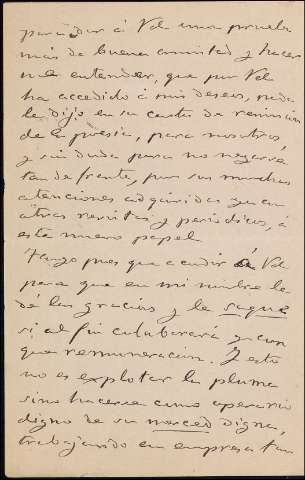 para dar á Vd una prueba
más de buena amistad y hacer
me entender, que por Vd
ha accedido á mis deseos, nada
le dijo en su carta de remisión
de la poesía, para nosotros,
y sin duda para no negarse
tan de frente, por sus muchas
atenciones adquiridas ya con
otras revistas y periódicos, á
este nuevo papel.
Tengo pues que acudir á Vd
para que en mi nombre le
dé las gracias y le saque
si al fin colaborará y con
que remuneración. Y esto
no es explotar la pluma
sino hacerse como operario
digno de su merced digna,
trabajando en empresa tan